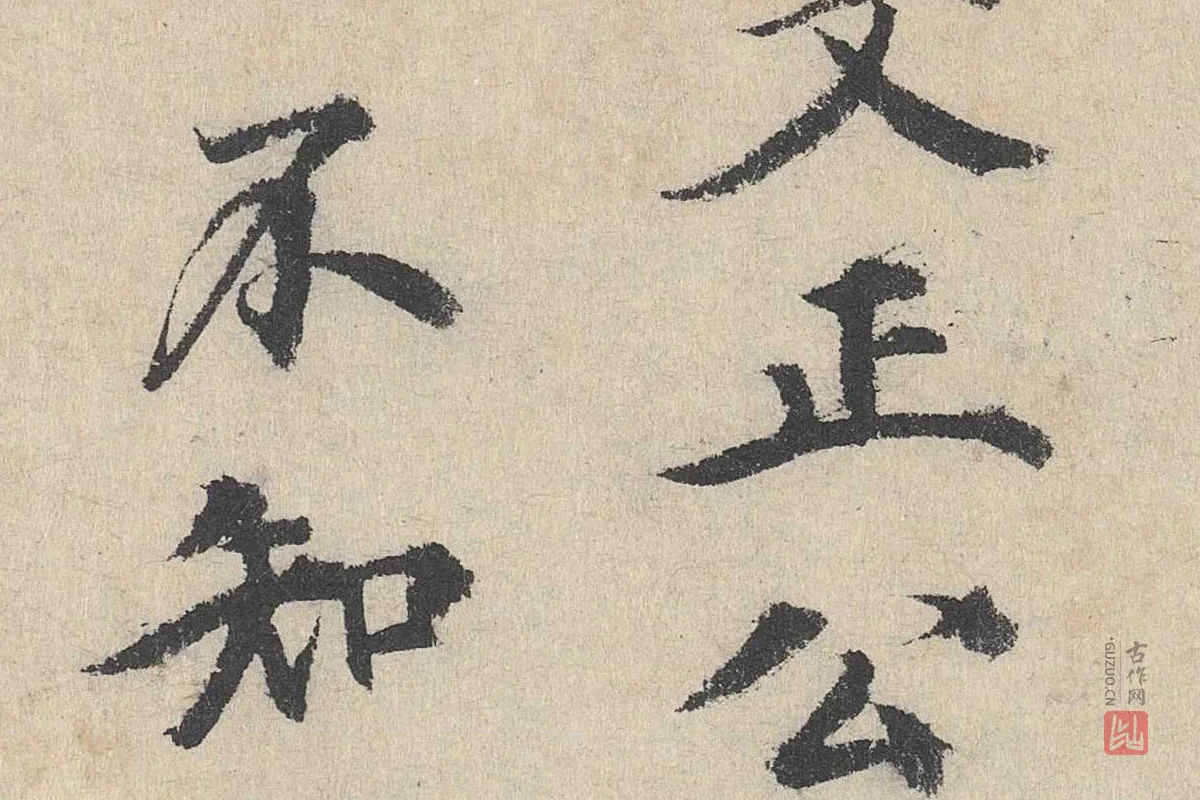 文正公
不知
古作网
·GUZUO.CN